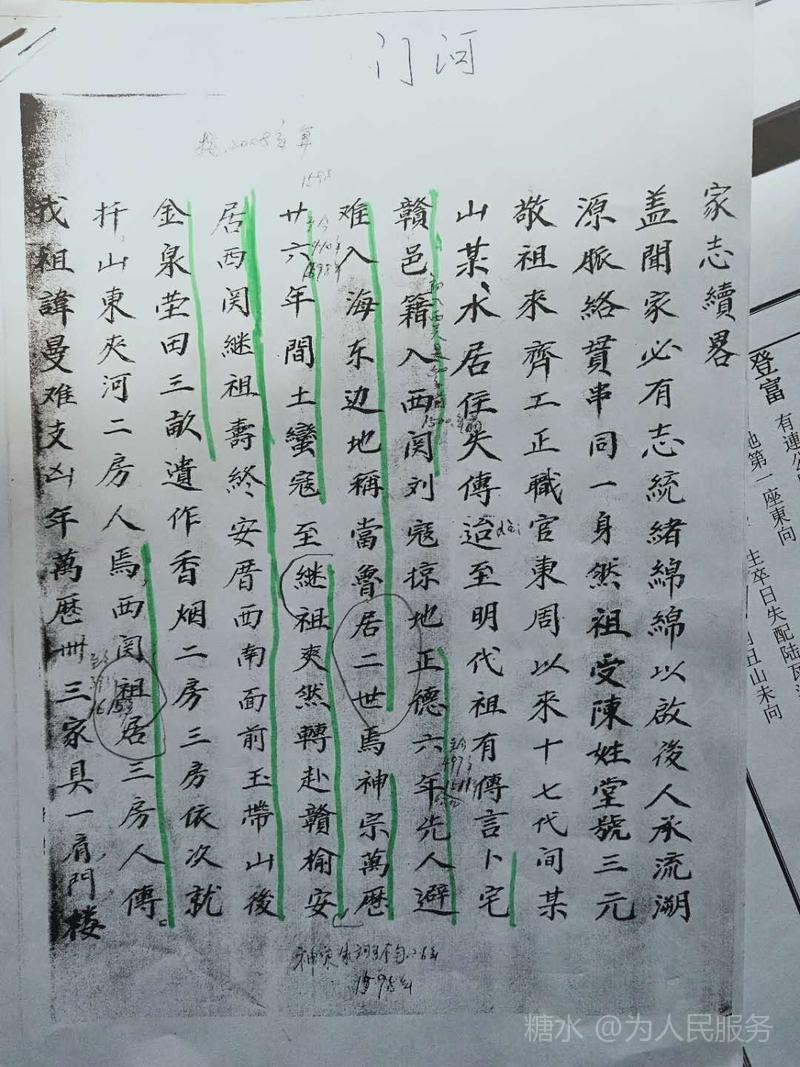 门河
家志續畧
盖聞家必有志統緒綿綿以啟後人承流溯
源脈絡貫串同一身然祖受陳姓堂號三元
敬祖來齊工正職官東周以來十七代间某
山某水居住失傳迨至明代祖有傳言卜宅
贛邑籍入西関刘寇掠地正德六年先人避
难入海东边地稱當魯居二世焉神宗萬歷
廿六年間土蠻寇至継祖爽然轉赴贛榆安
居西関継祖壽終安厝西南面前玉帶山後
金泉莹田三畝遺作香烟二房三房依次就
扦山東夾河二房人焉西関祖居三房人傳
我祖諱曼难支凶年萬歷卌三家具一肩門楼
1598
1598年
登富
有連公
地第一座東向
生卒日失配陆
丑山未向
糖水 @为人民服务